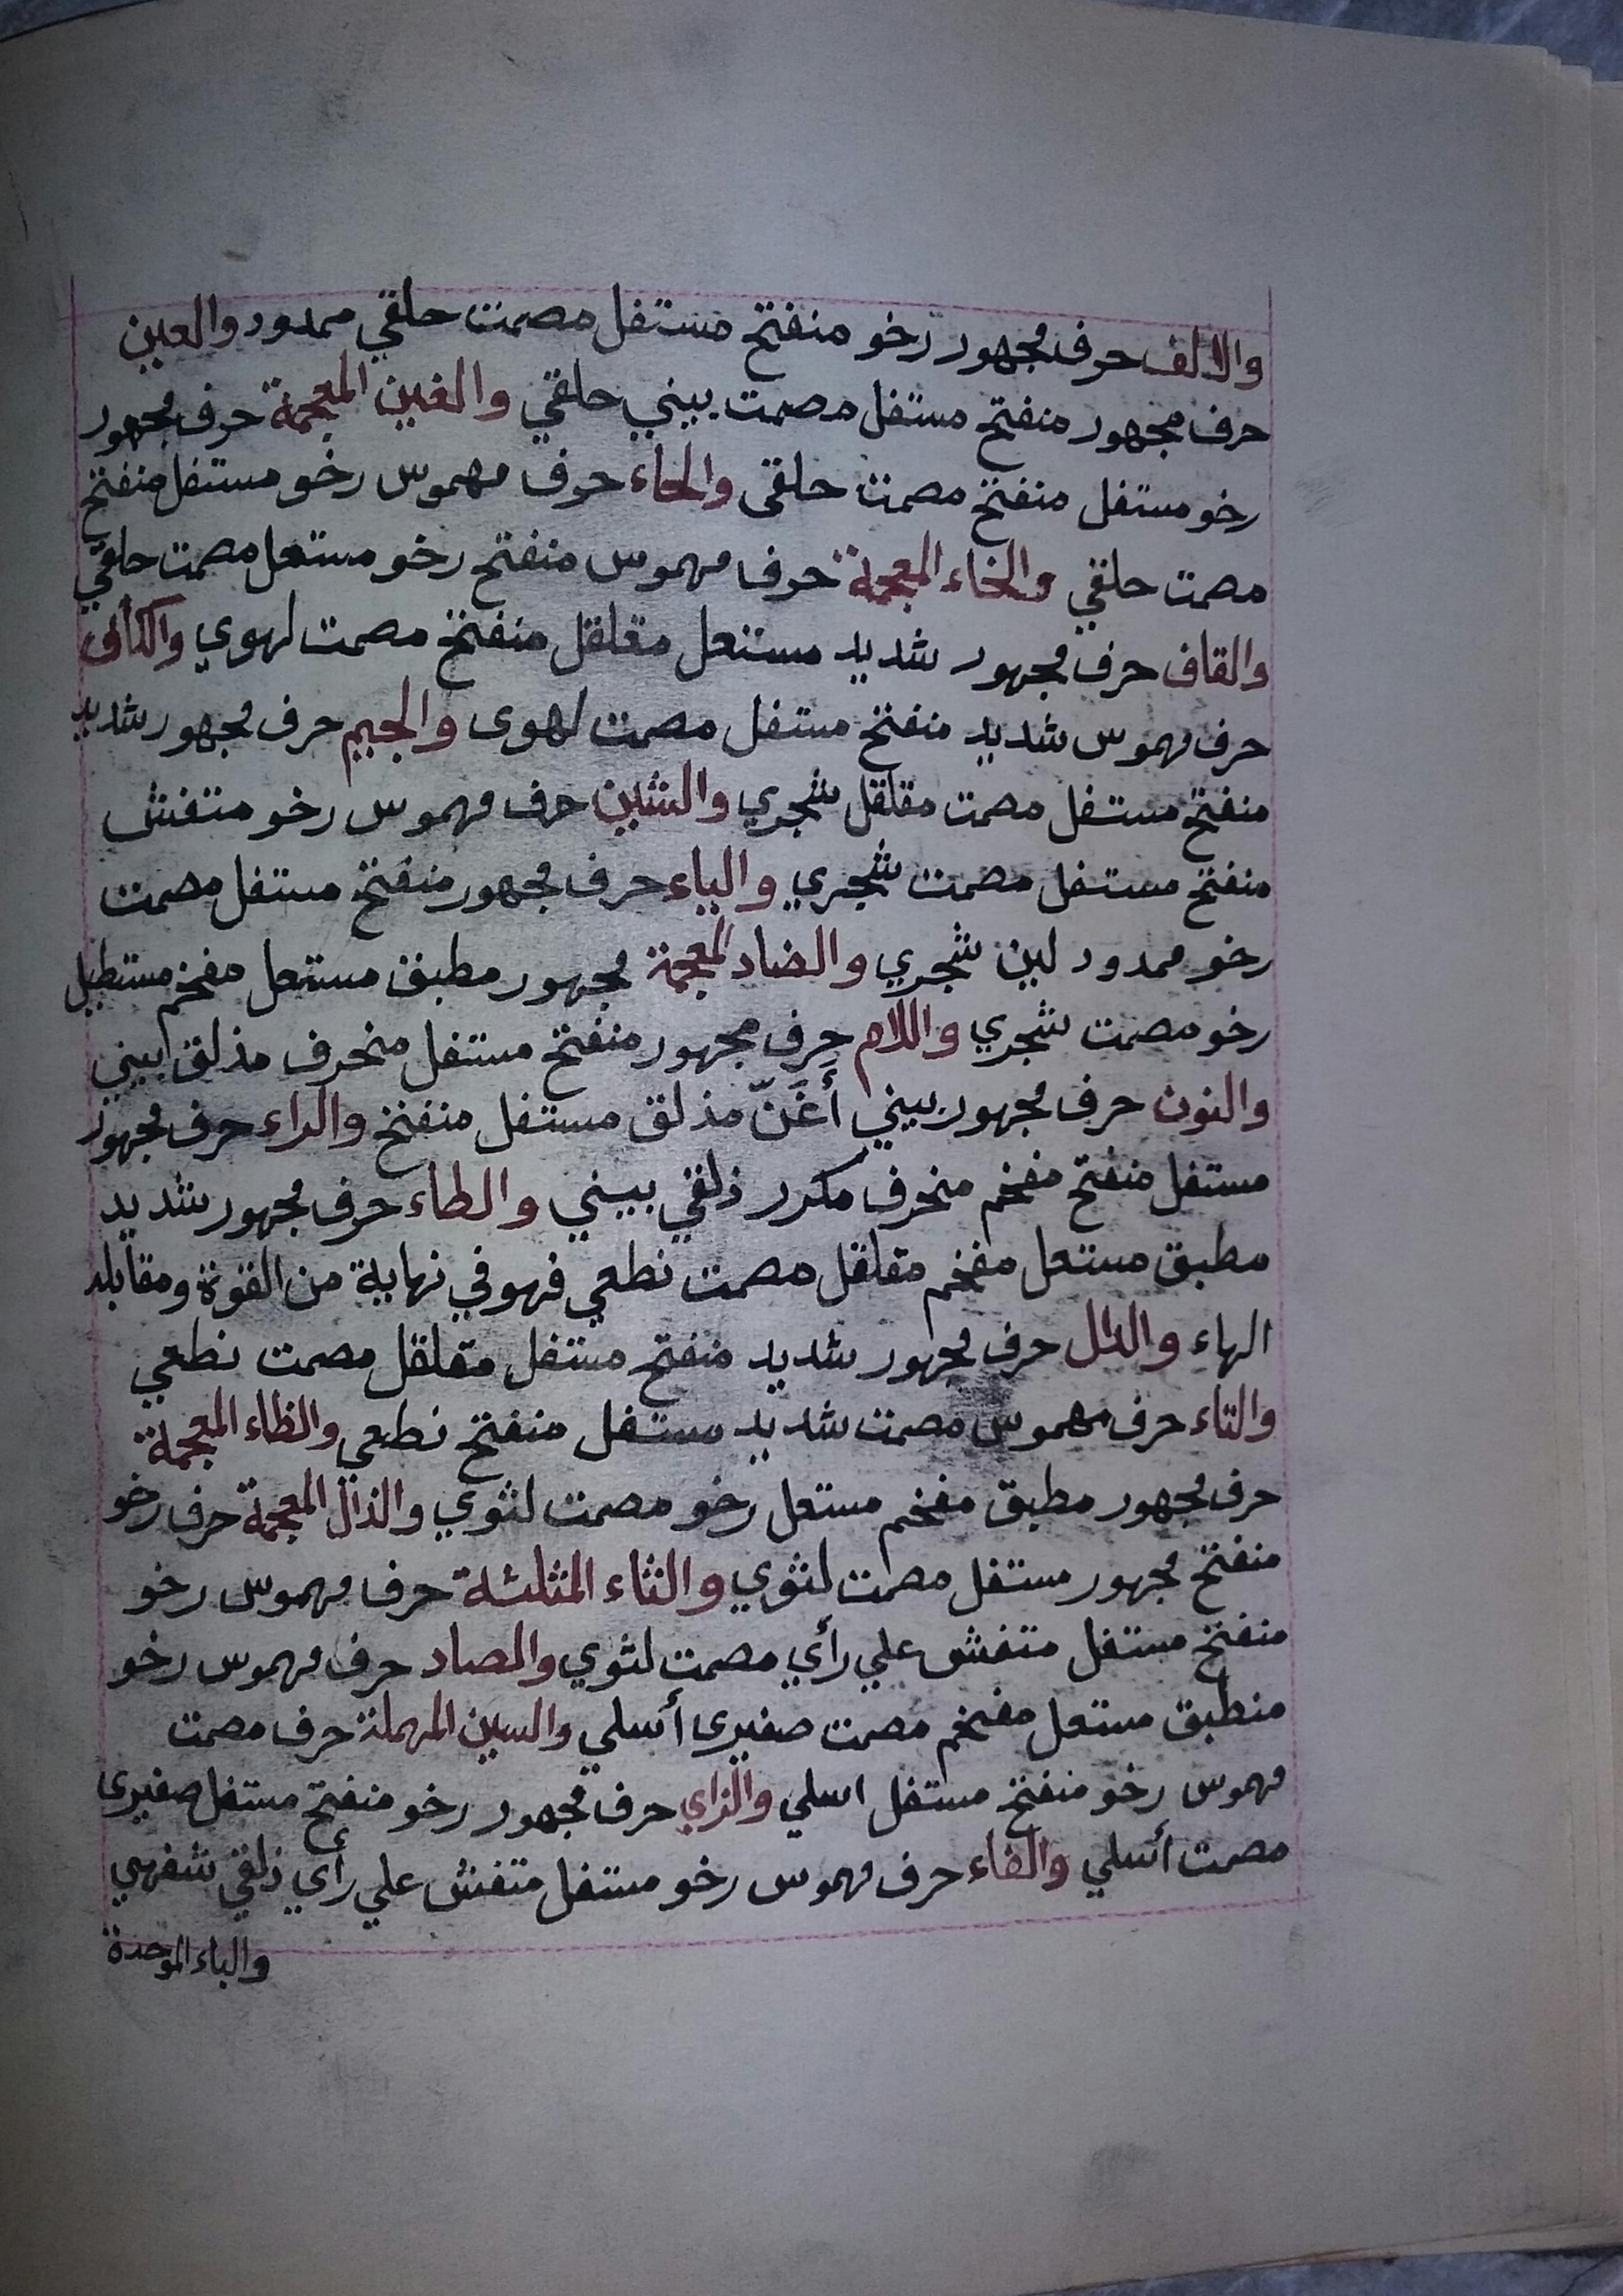 والالف حرف مجهور رخو منفتح مستفل مصمت حلقي ممدود والعين
حرف مجهور منفتح مستفل مصمت بيني حلقي والغين المعجمة حرف مجهور
رخو مستفل منفتح مصمت حلقى والحاء حرف مهموس رخو مستفل منفتح
مصمت حلقي والخاء المعجمة حرف مهموس منفتح رخو مستعل مصمت حلقي
والقاف حرف مجهور شديد مستعل مقلقل منفتح مصمت لهوي والكاف
حرف مهموس شديد منفتح مستفل مصمت لهوى والجيم حرف مجهور شديد
منفتح مستفل مصمت مقلقل شجري والشين حرف مهموس رخو متفش
منفتح مستفل مصمت شجري والياء حرف مجهور منفتح مستفل مصمت
رخو ممدود لين شجري والضاد المعجمة مجهور مطبق مستعل مفخم مستطيل
رخو مصمت شجري واللام حرف مجهور منفتح مستفل منحرف مذلق بيني
والنون حرف مجهور بيني أَغَنّ مذلق مستفل منفتح والراء حرف مجهور
مستفل منفتح مفخم منحرف مكرر ذلقي بيني والطاء حرف مجهور شديد
مطبق مستعل مفخم مقلقل مصمت نطعي فهو في نهاية من القوة ومقابله
الهاء والدال حرف مجهور شديد منفتح مستفل مقلقل مصمت نطعي
والتاء حرف مهموس مصمت شديد مستفل منفتح نطعي والظاء المعجمة
حرف مجهور مطبق مفخم مستعل رخو مصمت لثوي والذال المعجمة حرف رخو
منفتح مجهور مستفل مصمت لثوي والثاء المثلثة حرف مهموس رخو
منفتح مستفل متفش علي رأي مصمت لثوي والصاد حرف مهموس رخو
منطبق مستعل مفخم مصمت صفيرى أسلي والسين المهملة حرف مصمت
مهموس رخو منفتح مستفل اسلي والزاي حرف مجهور رخو منفتح مستفل صفيرى
مصمت أسلي والفاء حرف مهموس رخو مستفل متفش علي رأي ذلقي شفهي
والباء الموحدة